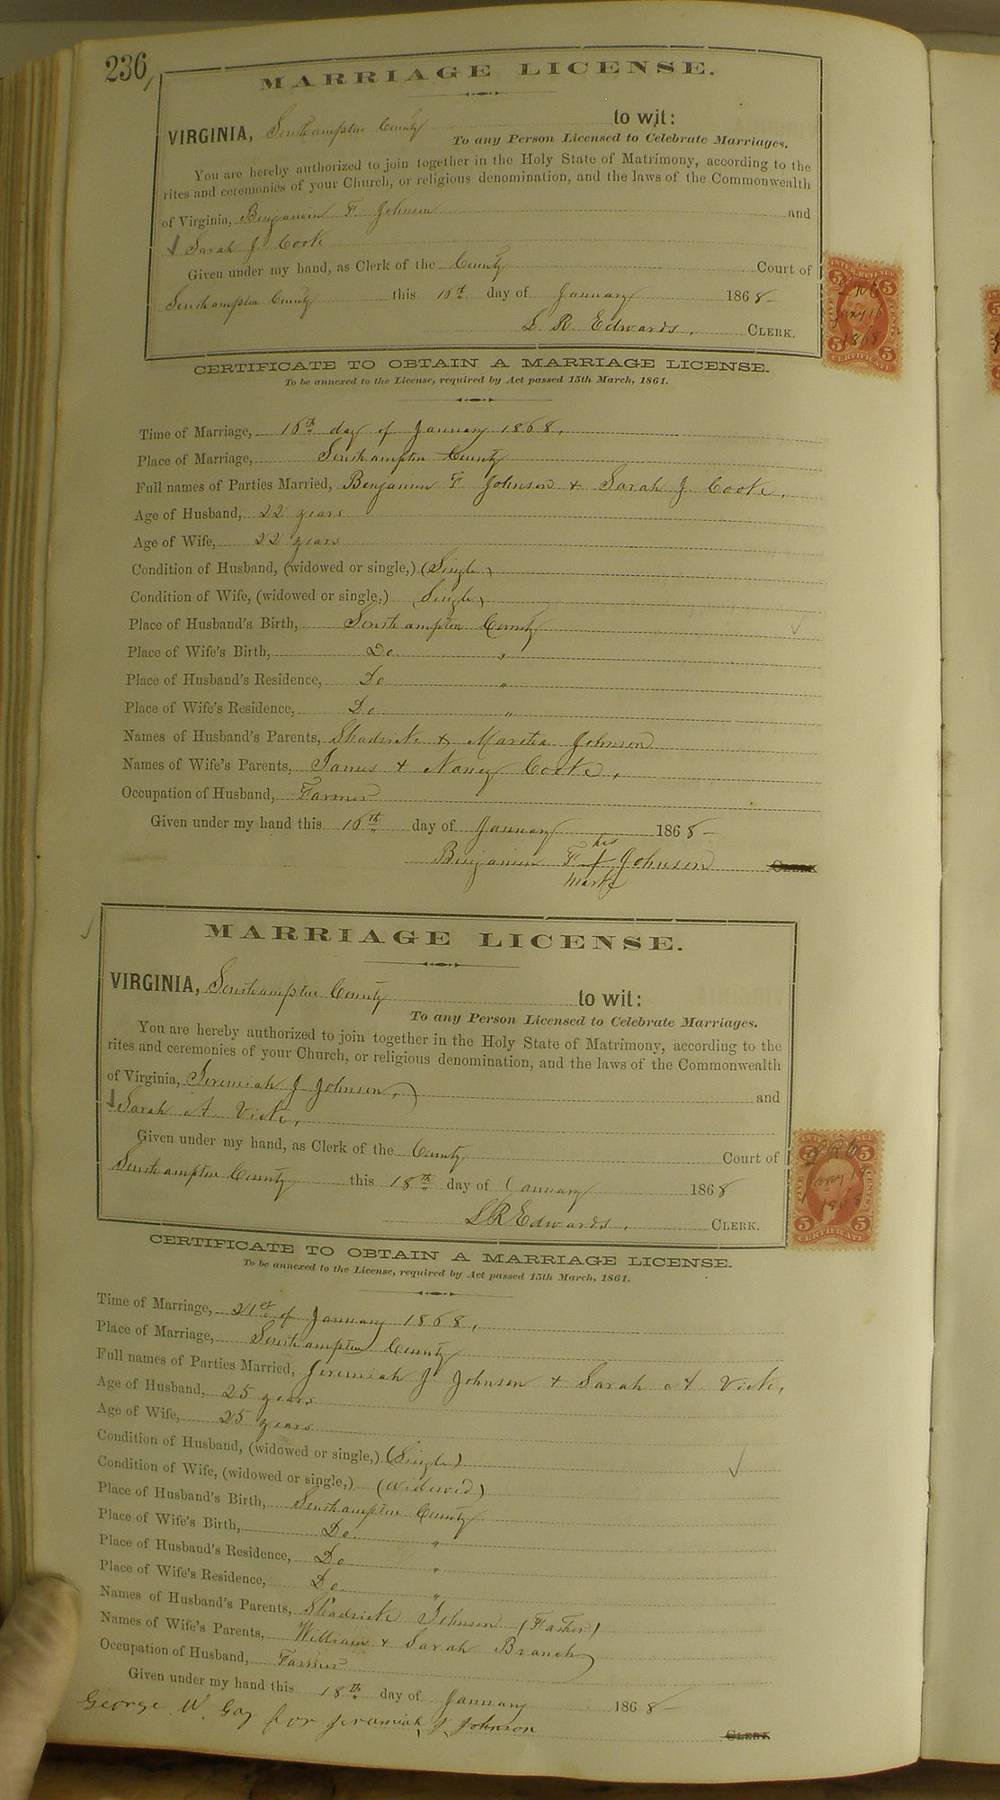 236
MARRIAGE LICENSE.
VIRGINIA, Southampton County to wit:
To any Person Licensed to Celebrate Marriages.
You are hereby authorized to join together in the Holy State of Matrimony, according to the
rites and ceremonies of your Church, or religious denomination, and the laws of the Commonwealth
of Virginia, Benjamin F Johnson and
Sarah J. Cooke
Given under my hand, as Clerk of the County Court of
Southampton County this 16th day of January 1868
L. R. Edwards. CLERK.
INTER. REVENUE
5 5
FIVE CENTS
Jany 16
1868
5 5
CERTIFICATE
CERTIFICATE TO OBTAIN A MARRIAGE LICENSE.
To be annexed to the License, required by Act passed 15th March, 1861.
Time of Marriage, 16th day of January 1868.
Place of Marriage, Southampton County
Full names of Parties Married, Benjamin F Johnson + Sarah J. Cooke.
Age of Husband, 22 years
Age of Wife, 22 years
Condition of Husband, (widowed or single,) (Single)
Condition of Wife, (widowed or single,) (Single)
Place of Husband's Birth, Southampton County
Place of Wife's Birth, Do "
Place of Husband's Residence, Do "
Place of Wife's Residence, Do "
Names of Husband's Parents, Shadrick + Martha Johnson
Names of Wife's Parents, James + Nancy Cooke.
Occupation of Husband, Farmer
Given under my hand this 16th day of January 1868
his
Benjamin F + Johnson CLERK
mark
MARRIAGE LICENSE.
VIRGINIA, Southampton County to wit:
To any Person Licensed to Celebrate Marriages.
You are hereby authorized to join together in the Holy State of Matrimony, according to the
rites and ceremonies of your Church, or religious denomination, and the laws of the Commonwealth
of Virginia, Jeremiah J Johnson, and
Sarah A. Vick,
Given under my hand, as Clerk of the County Court of
Southampton County this 18th day of January 1868
L R Edwards. CLERK.
5 5
FIVE CENTS
1868
5 5
CERTIFICATE
CERTIFICATE TO OBTAIN A MARRIAGE LICENSE.
To be annexed to the License, required by Act passed 15th March, 1861.
Time of Marriage, 21st of January 1868.
Place of Marriage, Southampton County
Full names of Parties Married, Jeremiah J Johnson + Sarah A Vick,
Age of Husband, 25 years
Age of Wife, 25 years
Condition of Husband, (widowed or single,) (Single)
Condition of Wife, (widowed or single,) (Widowed)
Place of Husband's Birth, Southampton County
Place of Wife's Birth, Do "
Place of Husband's Residence, Do "
Place of Wife's Residence, Do "
Names of Husband's Parents, Shadrick Johnson (Father)
Names of Wife's Parents, William + Sarah Branch
Occupation of Husband, Farmer
Given under my hand this 18th day of January 1868
George W. Gay for Jeremiah J. Johnson CLERK